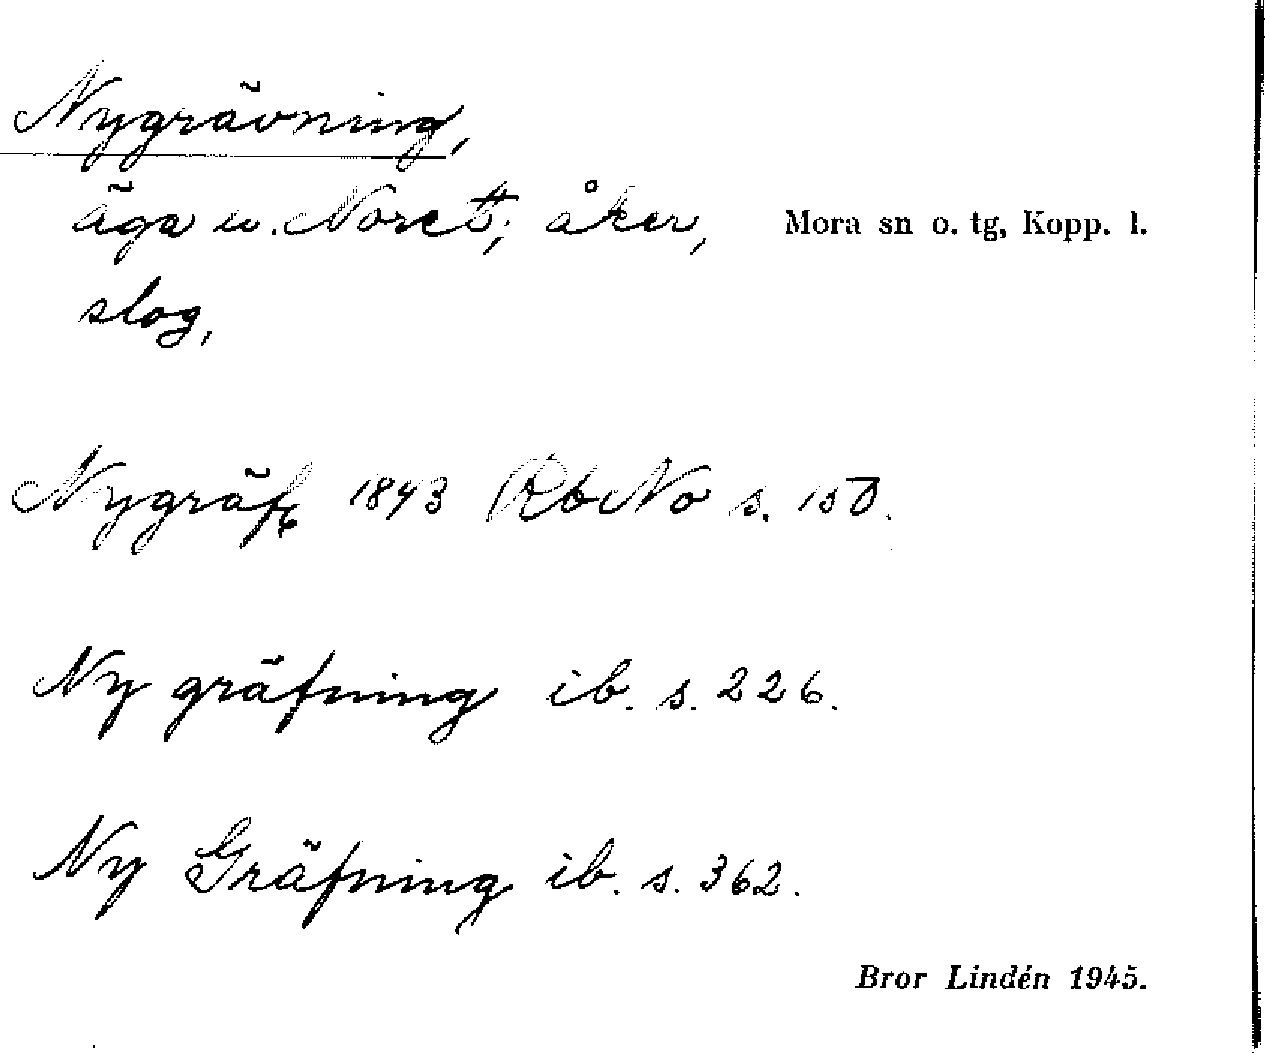 Nygrävning,
äga u. Noret; åker, Mora sn o. tg, Kopp. l.
slog,
Nygräf 1843 RbNo s. 150.
Ny gräfning ib. s. 226.
Ny Gräfning ib. s. 362.
Bror Lindén 1945.